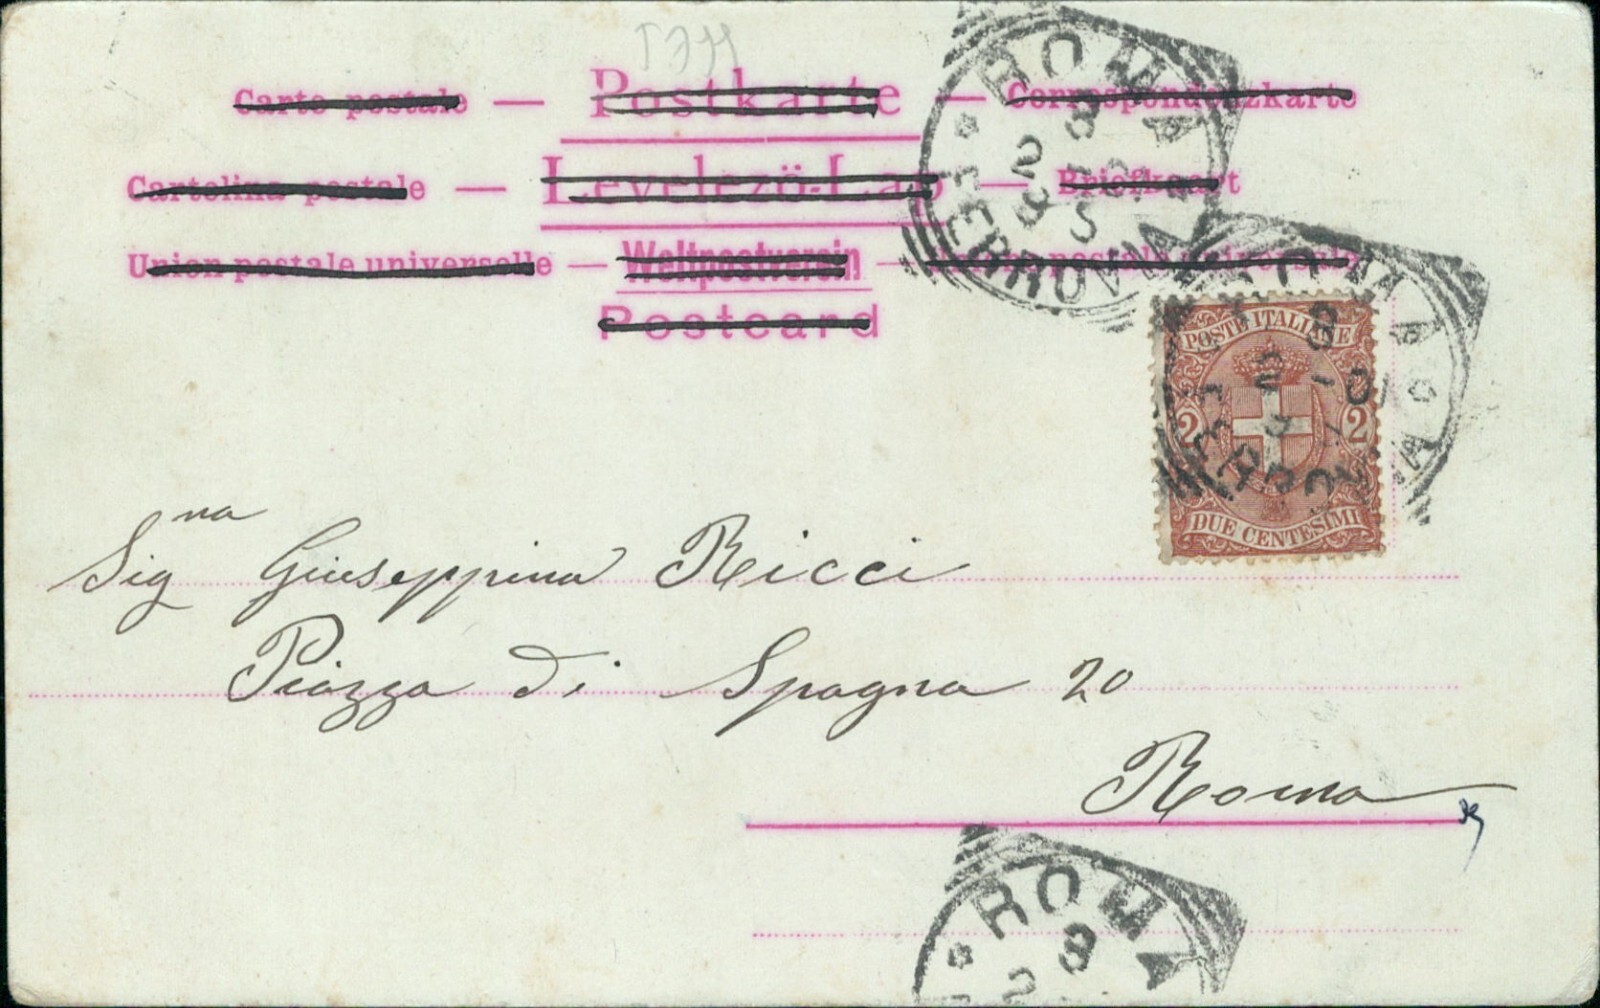 Carte postale — Postkarte — Correspondenzkarte
Cartolina postale — Levelezö-Lap — Briefkaart
Union postale universelle — Weltpostverein —
Postcard
ROMA
FERROVIA
POSTE ITALIANE
2 2
DUE CENTESIMI
Signa Giuseppina Ricci
Piazza di Spagna 20
Roma
ROMA